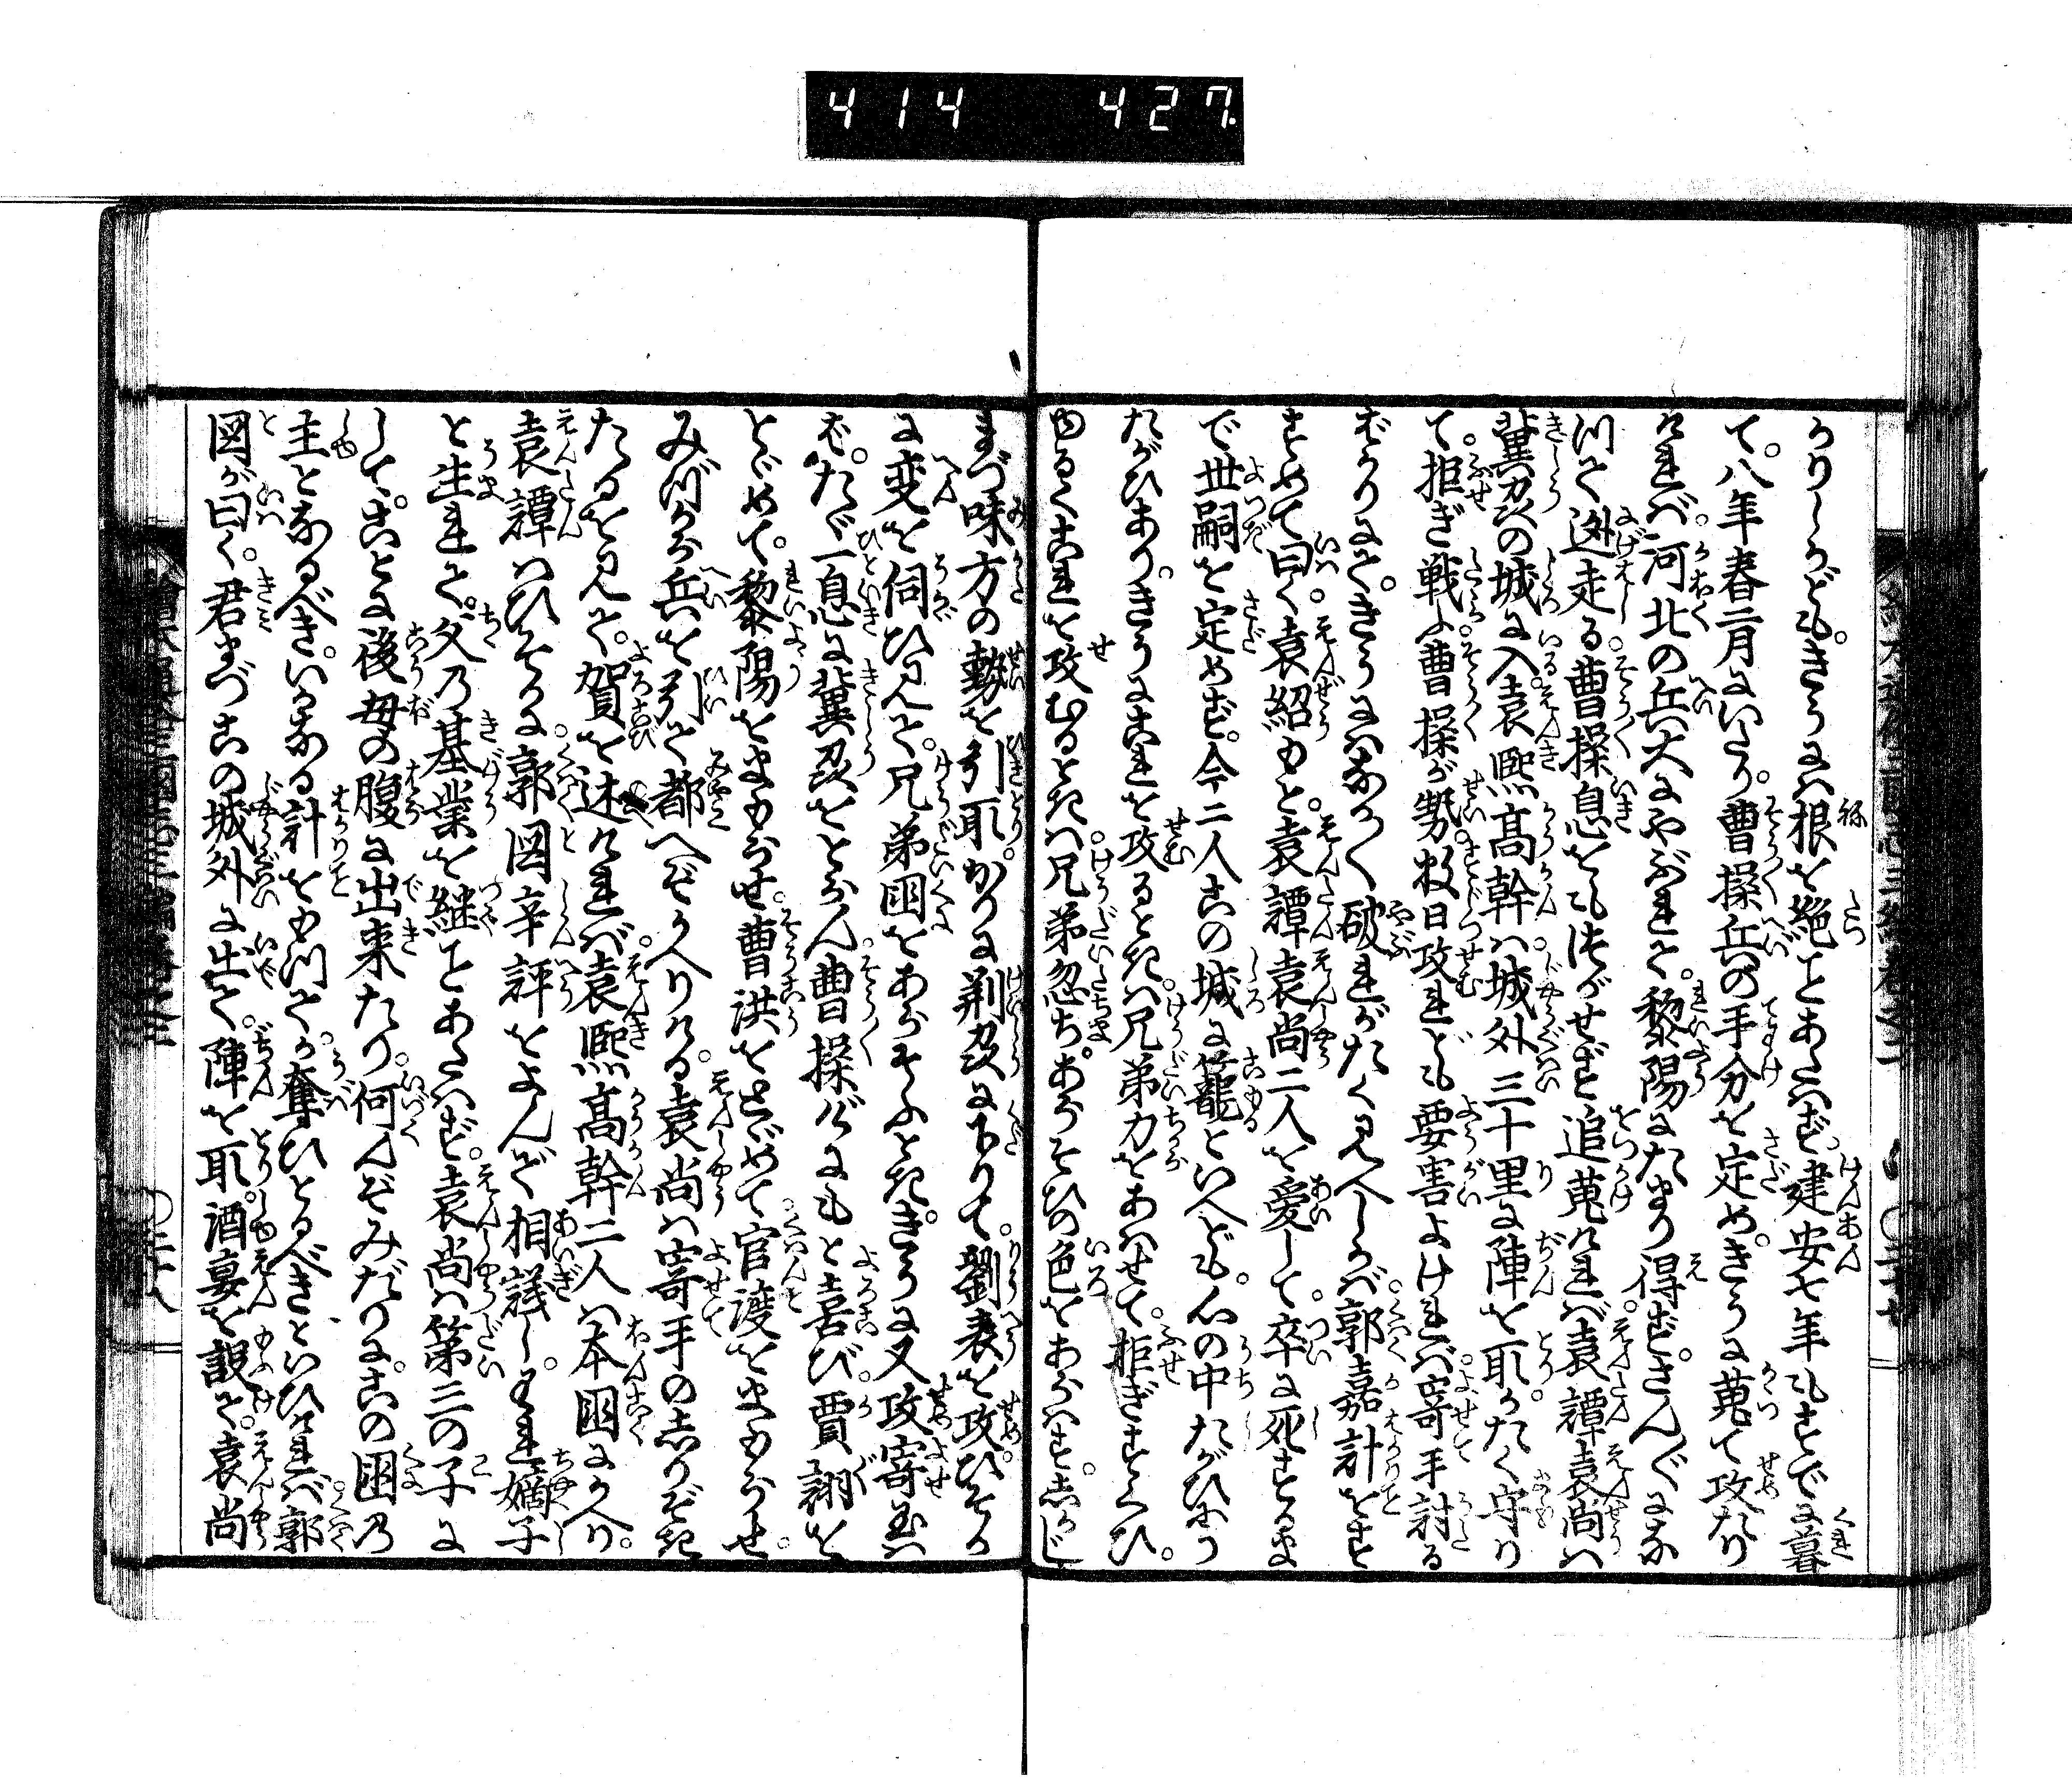 414 427
うりしかども。きうには根を絶ことあたはず建安七年もすでに暮
て。八年春二月にいたり。曹操兵の手分を定め。きうに蒐て攻たり
ければ。河北の兵大にやぶれて。黎陽にたまり得ず。さんぐにな
つて迯走る。曹操息をもつがせず追蒐ければ袁譚袁尚は
冀州の城に入。袁熈髙幹は。城外三十里に陣を取。かたく守り
て。拒ぎ戦ふ曹操が勢。数日攻れども要害よければ。寄手討る
ばかりにて。きうにはなかく破れがたく見へしかば。郭嘉計をす
すめて曰く。袁紹もと。袁譚袁尚二人を愛して。卒に死するま
で世嗣を定めず。今二人この城に籠といへども。心の中たがひにう
たがひあり。きうにこれを攻るときは。兄弟力をあはせて。拒ぎすくひ。
ゆるくこれを攻むるときは。兄弟忽ち。あらそひの色をあらはす。しかじ
まづ味方の勢を引取。かりに荆州に下りて。劉表を攻。ひそか
に変を伺ひ見て。兄弟国をあらそふとき。きうに又攻寄玉は
ば。たゞ一息に冀州をとらん。曹操げにもと喜び。賈詡を
とゞめて。黎陽をまもらせ。曹洪をとゞめて。官渡をまもらせ。
みづから兵を引て都へぞかへりける。袁尚は寄手のしりぞき
たるを見て。賀を述ければ。袁熈髙幹二人は本国にかへり。
袁譚はひそかに。郭図辛評をよんで相議し。われ嫡子
と生れて。父の基業を継ことあたはず。袁尚は第三の子に
して。ことに後母の腹に出来たり。何んぞみだりに。この国の
主となるべき。いかなる計をもつて。か奪ひとるべきといひければ郭
図が曰く。君まづこの城外に出て。陣を取。酒宴を設て。袁尚